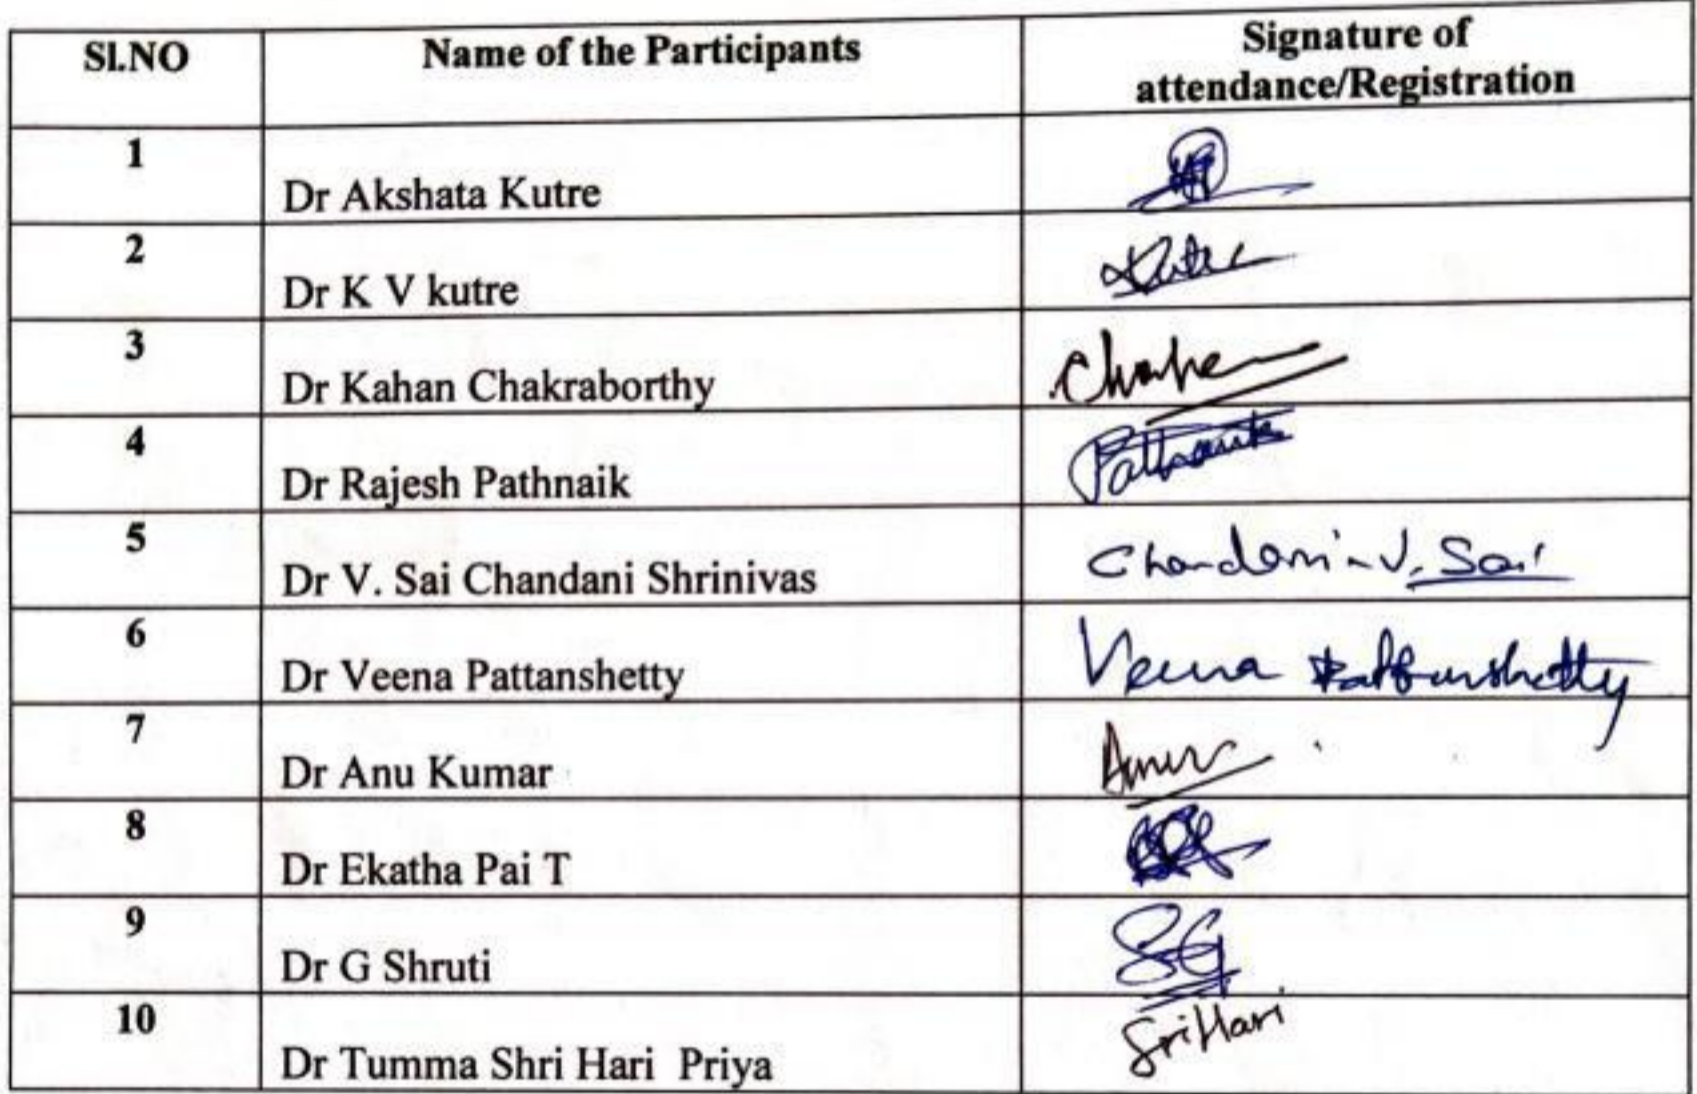 Sl.NO Name of the Participants Signature of
attendance/Registration
1
Dr Akshata Kutre
2
Dr K V kutre
3
Dr Kahan Chakraborthy
4
Dr Rajesh Pathnaik Pathnaik
5
Dr V. Sai Chandani Shrinivas Chandani V. Sai
6
Dr Veena Pattanshetty Veena Pattanshetty
7
Dr Anu Kumar
8
Dr Ekatha Pai T
9
Dr G Shruti SG
10 SriHari
Dr Tumma Shri Hari Priya